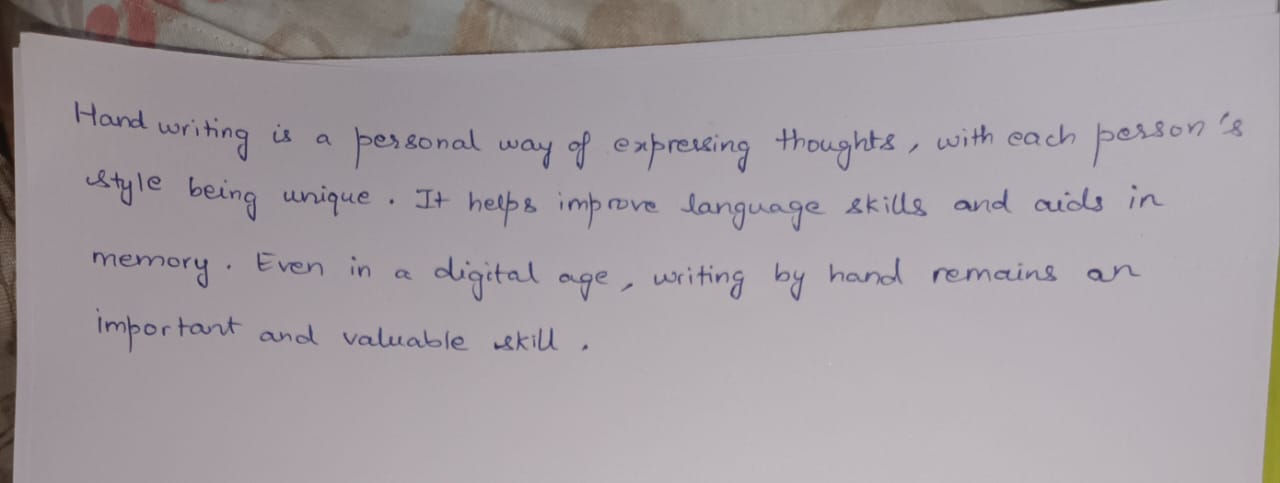 Hand writing is a personal way of expressing thoughts, with each person's
style being unique. It helps improve language skills and aids in
memory. Even in a digital age, writing by hand remains an
important and valuable skill.